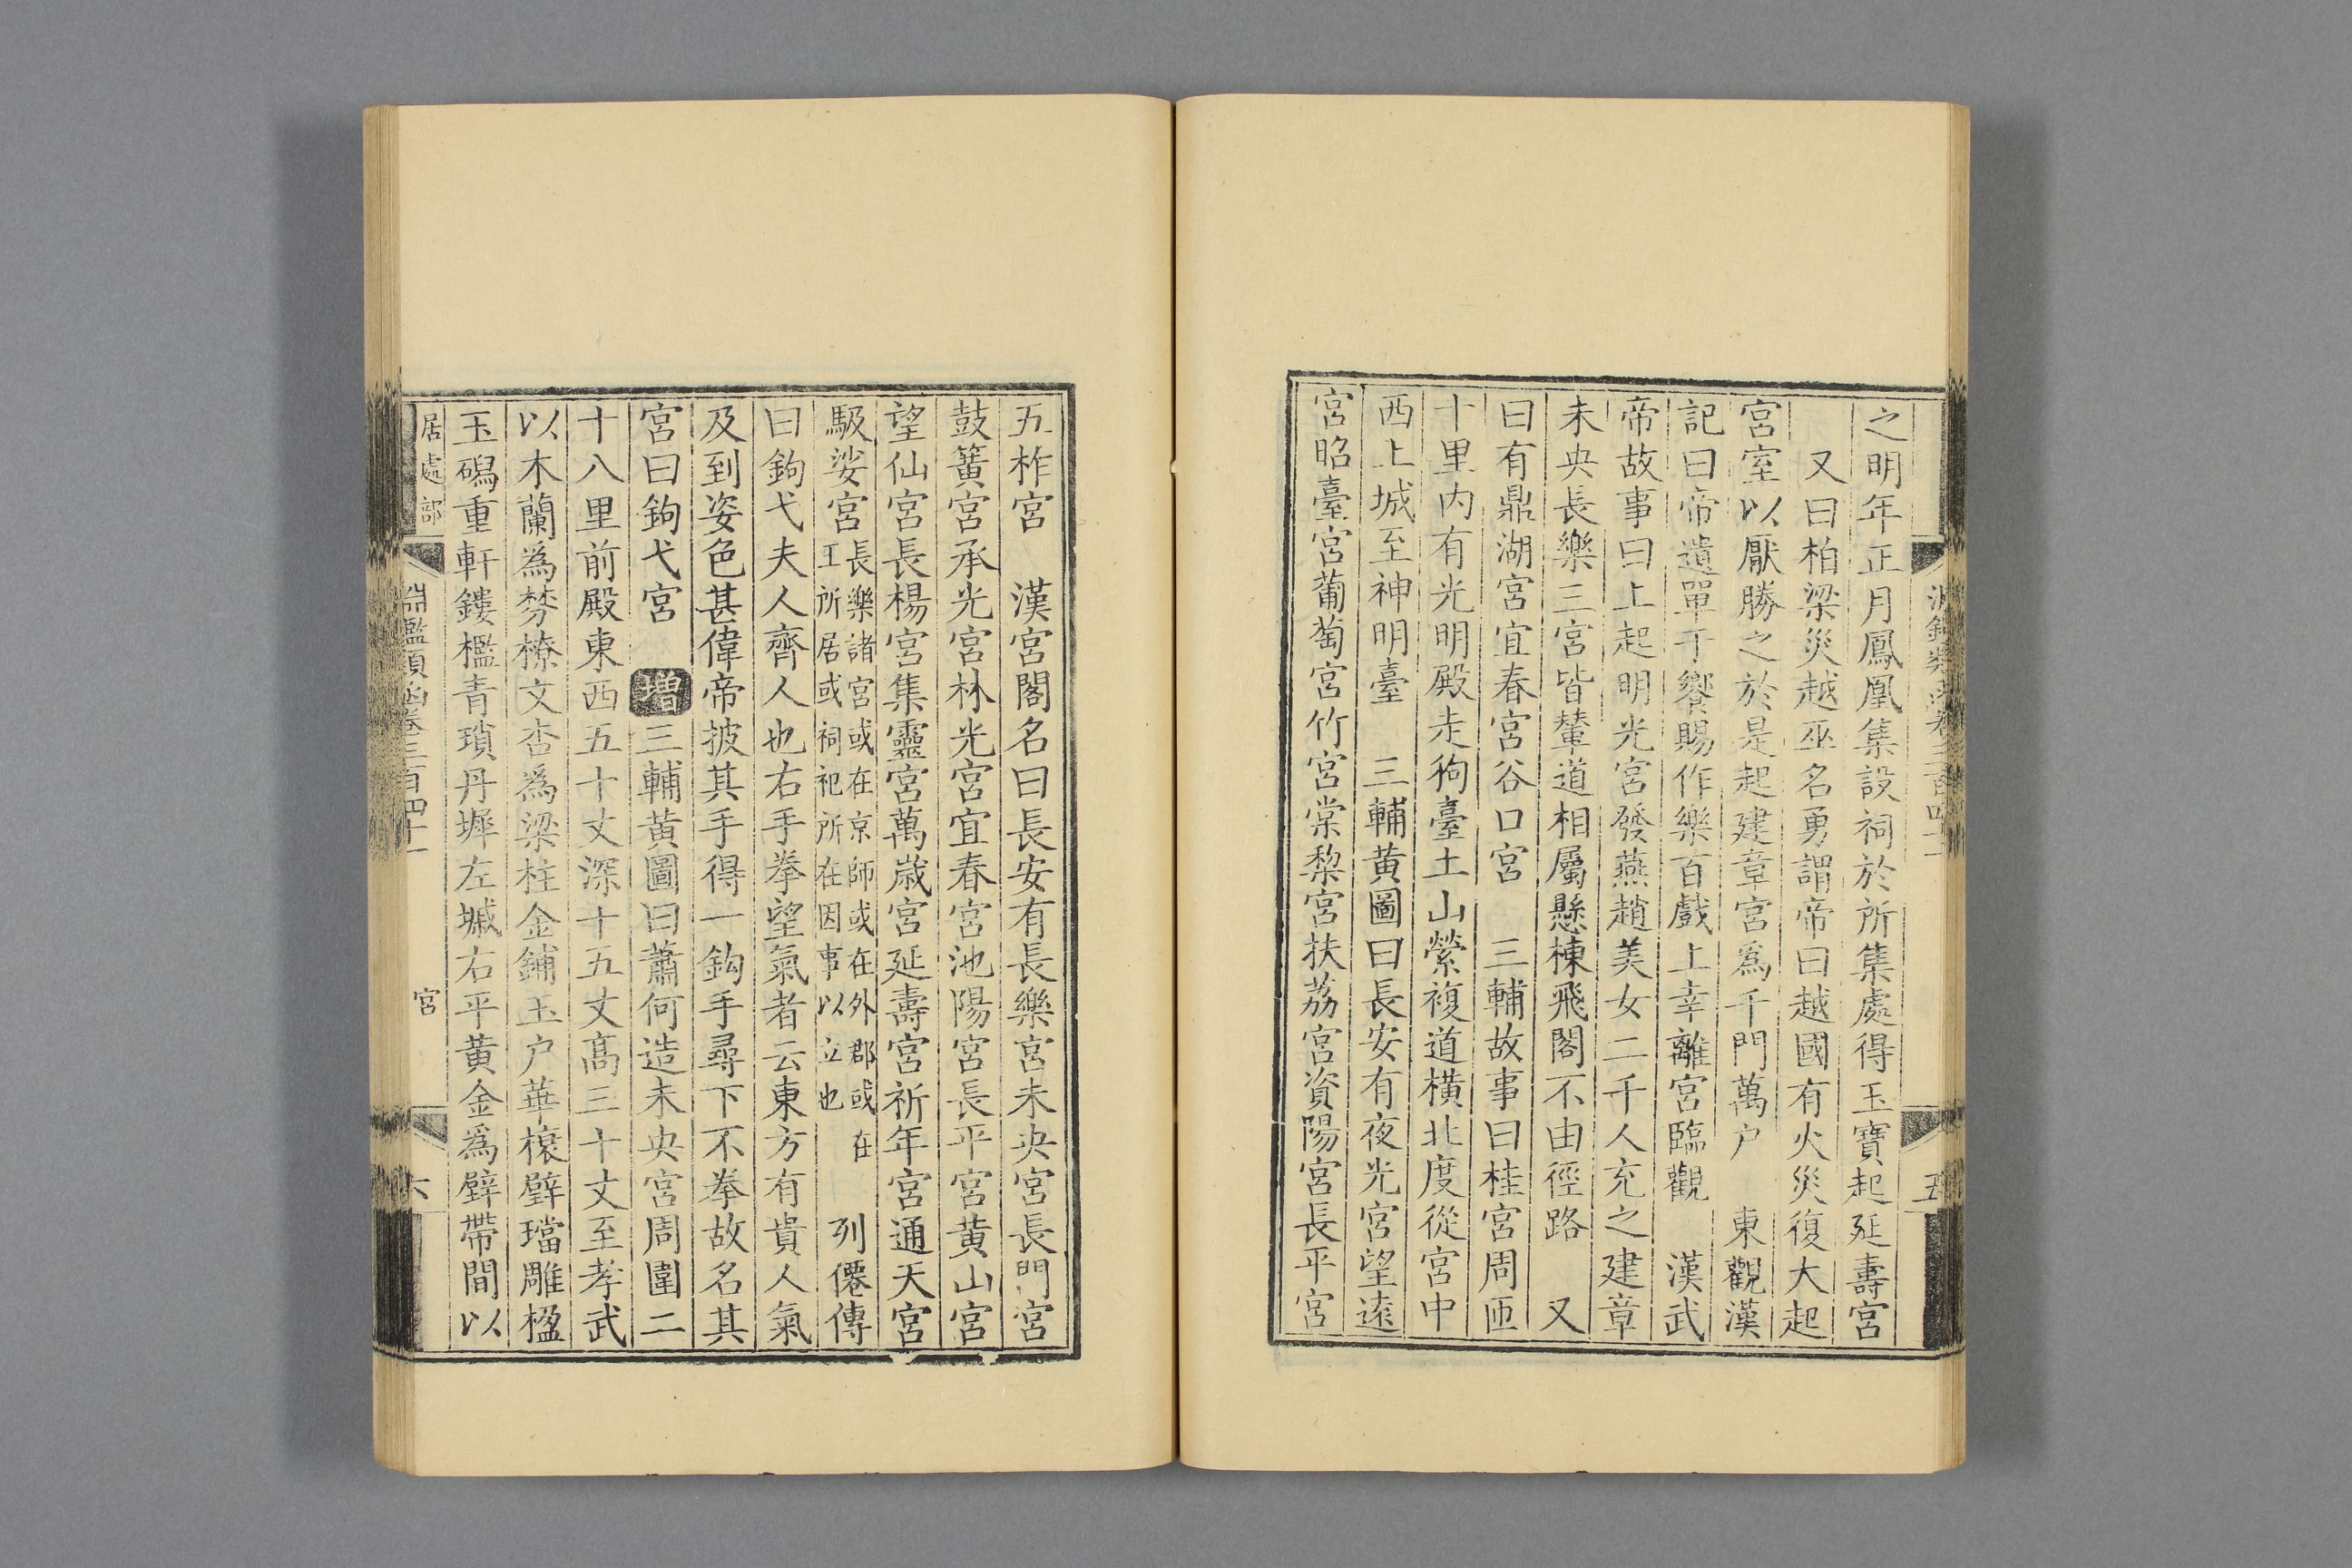 之明年正月鳳凰集設祠於所集處得玉寶起延壽宮
又曰柏梁災越巫名勇謂帝曰越國有火災復大起
宮室以厭勝之於是起建章宮爲千門萬户　東觀漢
記曰帝遺單于饗賜作樂百戲上幸離宮臨觀　漢武
帝故事曰上起明光宮發燕趙美女二千人充之建章
未央長樂三宮皆輦道相屬懸棟飛閣不由徑路　又
曰有鼎湖宮宜春宮谷口宮　三輔故事曰桂宮周匝
十里内有光明殿走狗臺土山縈複道橫北度從宮中
西上城至神明臺　三輔黄圖曰長安有夜光宮望遠
宮昭臺宮葡萄宮竹宮棠棃宮扶荔宮資陽宮長平宮
五
五柞宮　漢宮閣名曰長安有長樂宮未央宮長門宮
鼓簧宮承光宮林光宮宜春宮池陽宮長平宮黄山宮
望仙宮長楊宮集靈宮萬歳宮延壽宮祈年宮通天宮
馺娑宮長樂諸宮或在京師或在外郡或在工所居或祠祀所在因事以立也　列僊傳
曰鉤弋夫人齊人也右手拳望氣者云東方有貴人氣
及到姿色甚偉帝披其手得一鈎手尋下不拳故名其
宮曰鉤弋宮　增三輔黃圖曰蕭何造未央宮周圍二
十八里前殿東西五十丈深十五丈髙三十丈至孝武
以木蘭為棼橑文杏爲梁柱金鋪玉户華榱璧璫雕楹
玉磶重軒鏤檻青瑣丹墀左墄右平黄金爲壁帶間以
居處部　淵鑑類函卷三百四十一　宮　六